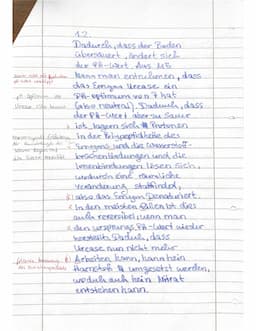 1.2.
Dadurch, dass der Boden
übersäuert, ändert sich
der PH-Wert. Aus M3
kann man entnehmen, dass
das Enzym Urease ein
PH-Optimum von 7 hat
(also neutral). Dadurch, dass
der PH-Wert aber zu sauer
ist, lagern sich Protonen
in der Polypeptidkette des
Enzyms und die Wasserstoff-
brückenbindungen und die
Ionenbindungen lösen sich,
wodurch eine räumliche
Veränderung stattfindet,
also das Enzym Denaturiert.
In den meisten Fällen ist dies
auch reversibel wenn man
den ursprungs PH-Wert wieder
herstellt. Dadurch, dass
Urease nun nicht mehr
Arbeiten kann, kann kein
Harnstoff umgesetzt werden,
wodurch auch kein Nitrat
entstehen kann.